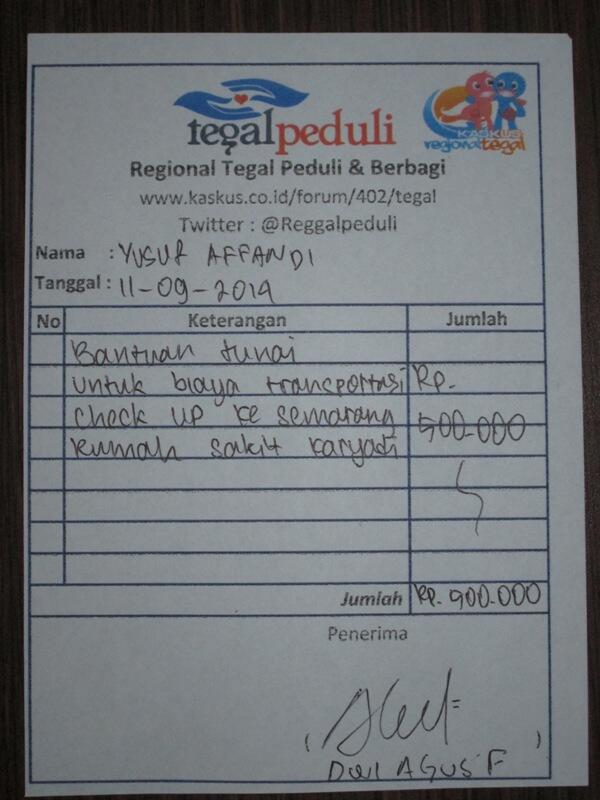 tegalpeduli
KASKUS
regionaltegal
Regional Tegal Peduli & Berbagi
www.kaskus.co.id/forum/402/tegal
Twitter : @Reggalpeduli
Nama : YUSUF AFFANDI
Tanggal : 11-09-2014
No Keterangan Jumlah
Bantuan tunai
untuk biaya transportasi Rp.
Check up ke semarang 500-000
Rumah sakit Karyadi
Jumlah Rp. 900-000
Penerima
( )
DWI AGUS F